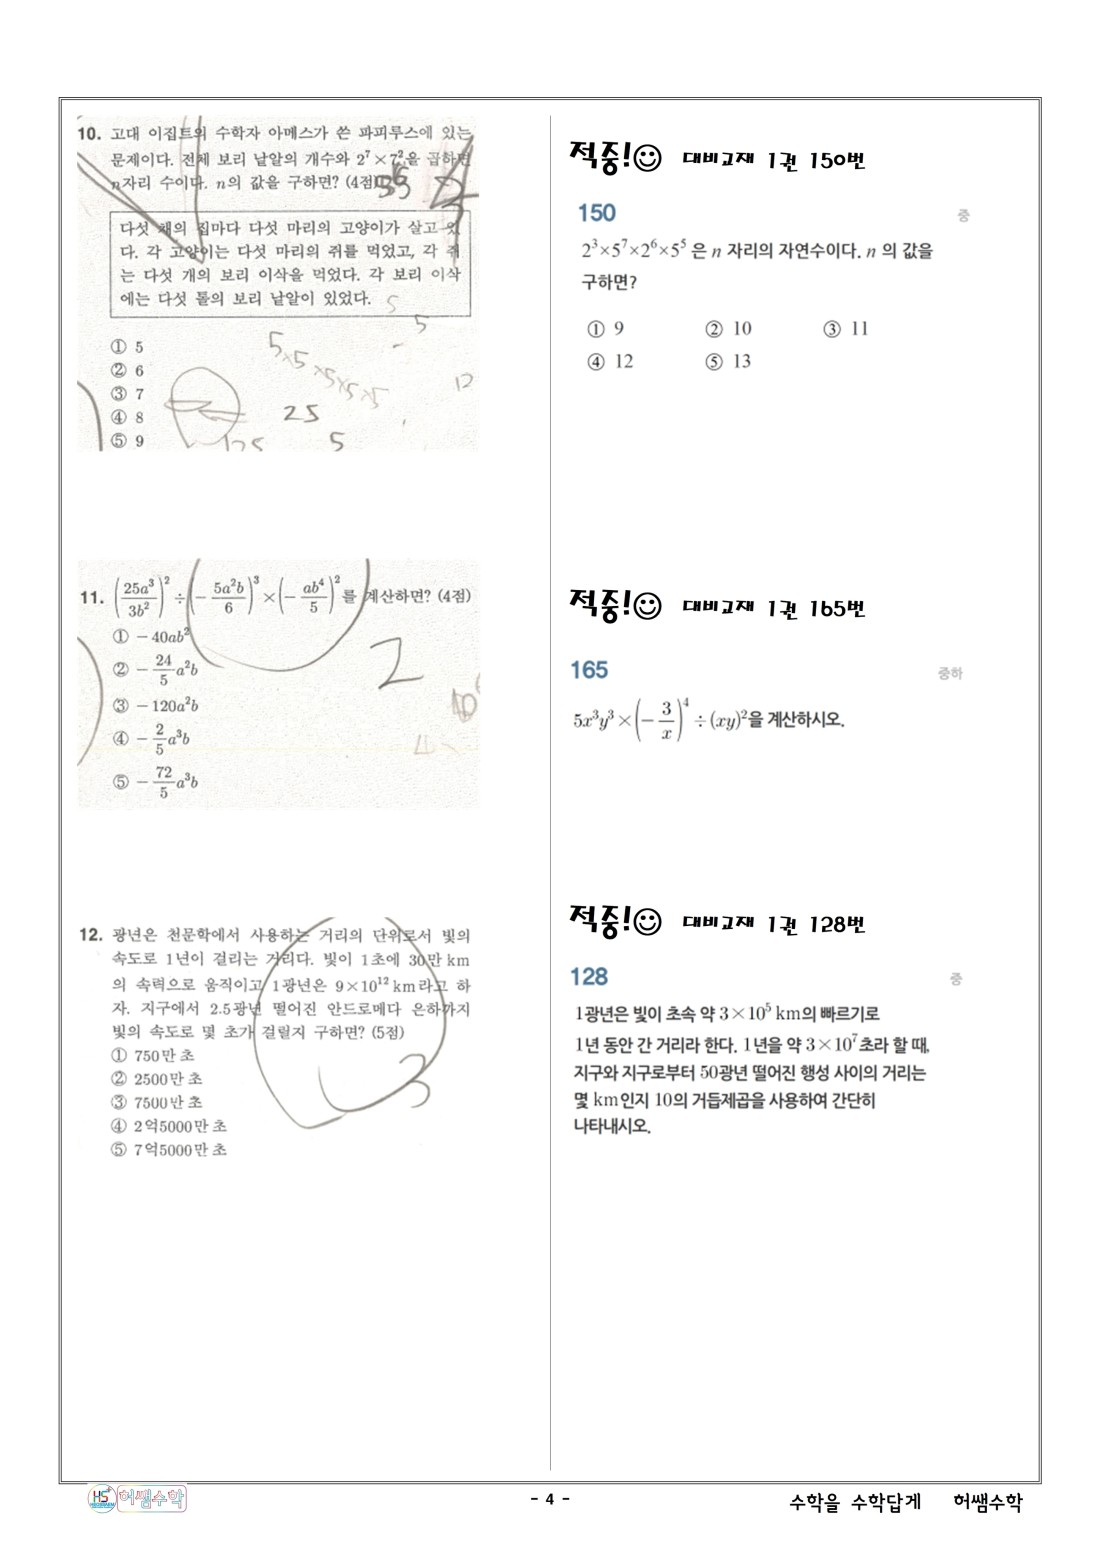 10. 고대 이집트의 수학자 아메스가 쓴 파피루스에 있는
문제이다. 전체 보리 낱알의 개수와 2⁷×7²을 곱하면
n자리 수이다. n의 값을 구하면? (4점)
다섯 채의 집마다 다섯 마리의 고양이가 살고 있
다. 각 고양이는 다섯 마리의 쥐를 먹었고, 각 쥐
는 다섯 개의 보리 이삭을 먹었다. 각 보리 이삭
에는 다섯 톨의 보리 낱알이 있었다.
① 5
② 6
③ 7
④ 8
⑤ 9
5
5
5×5×5×5×5
12
25
125
5
11. (25a³/3b²)² ÷ (−5a²b/6)³ × (−ab⁴/5)² 를 계산하면? (4점)
① −40ab²
② −24/5 a²b
③ −120a²b
④ −2/5 a³b
⑤ −72/5 a³b
2
12. 광년은 천문학에서 사용하는 거리의 단위로서 빛의
속도로 1년이 걸리는 거리다. 빛이 1초에 30만 km
의 속력으로 움직이고 1광년은 9×10¹² km라고 하
자. 지구에서 2.5광년 떨어진 안드로메다 은하까지
빛의 속도로 몇 초가 걸릴지 구하면? (5점)
① 750만 초
② 2500만 초
③ 7500만 초
④ 2억5000만 초
⑤ 7억5000만 초
3
적중!☺ 대비교재 1권 150번
150 중
2³×5⁷×2⁶×5⁵ 은 n 자리의 자연수이다. n 의 값을
구하면?
① 9 ② 10 ③ 11
④ 12 ⑤ 13
적중!☺ 대비교재 1권 165번
165 중하
5x³y³ × (−3/x)⁴ ÷ (xy)²을 계산하시오.
적중!☺ 대비교재 1권 128번
128 중
1광년은 빛이 초속 약 3×10⁵ km의 빠르기로
1년 동안 간 거리라 한다. 1년을 약 3×10⁷초라 할 때,
지구와 지구로부터 50광년 떨어진 행성 사이의 거리는
몇 km인지 10의 거듭제곱을 사용하여 간단히
나타내시오.
HS 허쌤수학
- 4 -
수학을 수학답게 허쌤수학